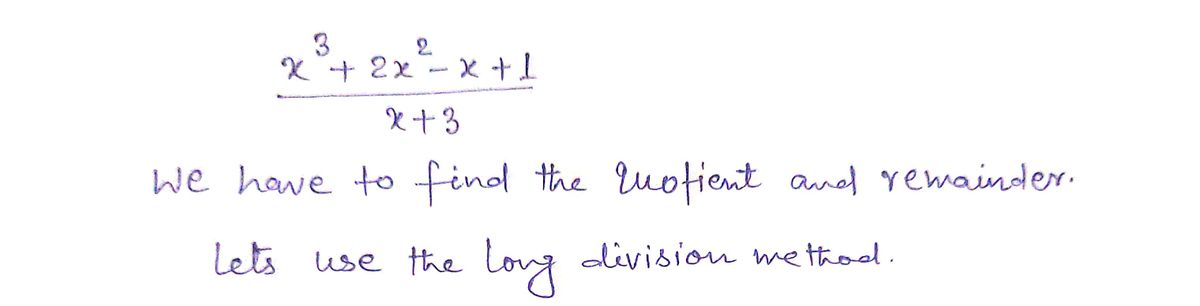 x³ + 2x² - x + 1
x + 3
We have to find the quotient and remainder.
Lets use the long division method.